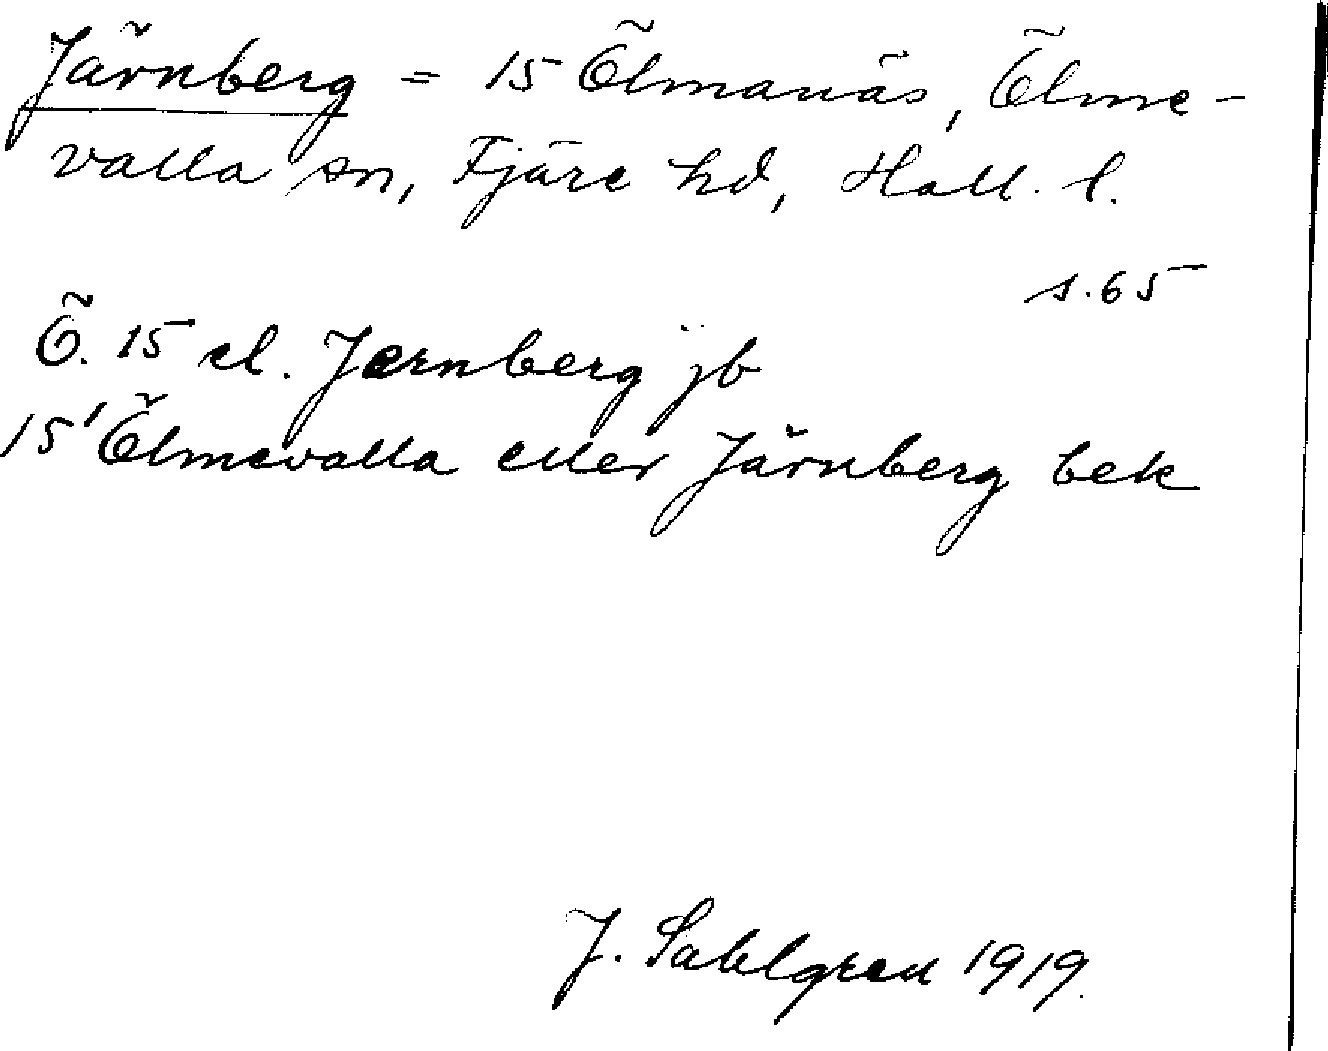 Järnberg = 15 Ölmanäs, Ölme-
valla sn, Fjäre hd, Hall. l.
s. 65
Ö. 15 el. Jernberg jb
15' Ölmevalla eller Järnberg bek
J. Sahlgren 1919.